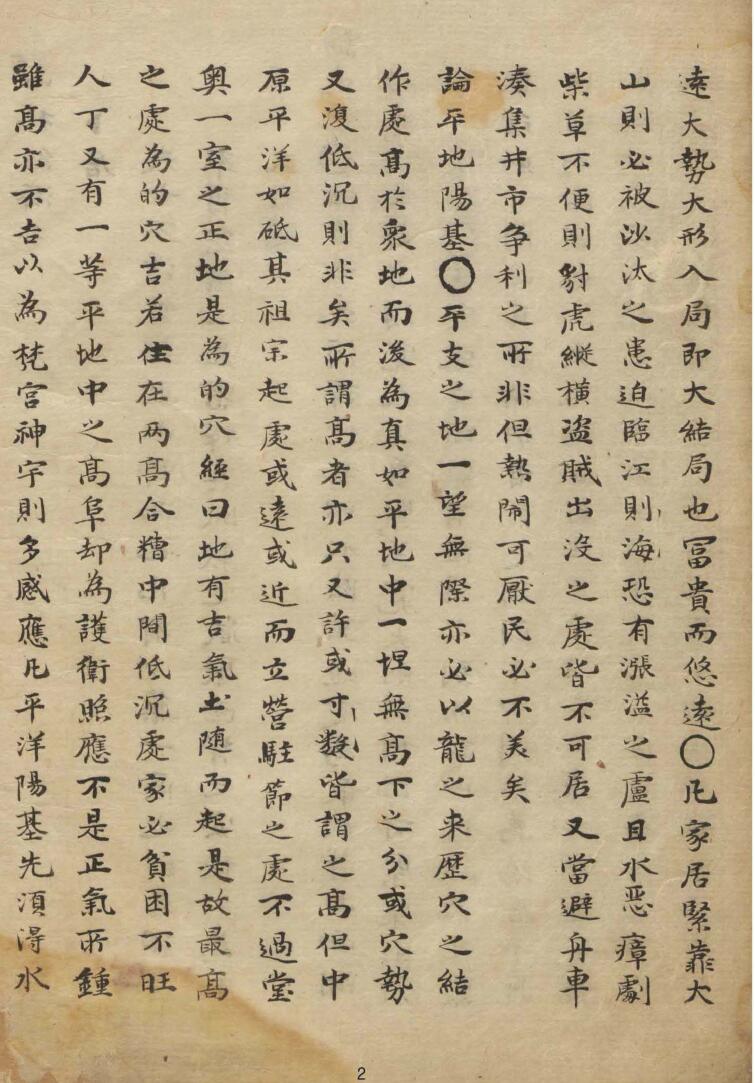 遠大勢大形入局即大結局也冨貴而悠遠〇凡家居緊靠大
山則必被沙汰之患迫臨江則海恐有漲溢之盧且水惡瘴劇
柴草不便則豺虎縱橫盗賊出没之處皆不可居又當避舟車
湊集井市争利之所非但熱鬧可厭民必不美矣
論平地陽基〇平支之地一望無際亦必以龍之来歴穴之結
作處髙於衆地而後為真如平地中一埕無髙下之分或穴勢
又復低沉則非矣所謂髙者亦只又許或寸數皆謂之髙但中
原平洋如砥其祖宗起處或遠或近而立營駐節之處不過堂
奥一室之正地是為的穴經曰地有吉氣土随而起是故最髙
之處為的穴吉若住在两髙合糟中間低沉處家必貧困不旺
人丁又有一等平地中之髙阜却為護衛照應不是正氣所鍾
雖髙亦不吉以為梵宫神宇則多感應凡平洋陽基先湏得水
2